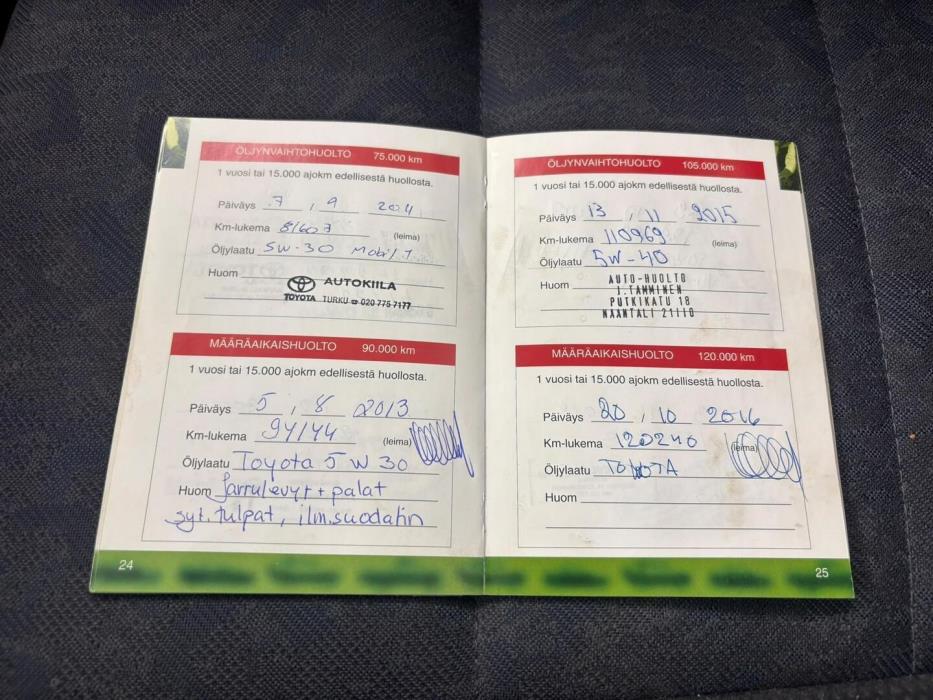 ÖLJYNVAIHTOHUOLTO 75.000 km
1 vuosi tai 15.000 ajokm edellisestä huollosta.
Päiväys 7 , 9 2011
Km-lukema 81607 (leima)
Öljylaatu 5W-30 Mobil 1
Huom
AUTOKIILA
TOYOTA TURKU ☎ 020 775 7177
MÄÄRÄAIKAISHUOLTO 90.000 km
1 vuosi tai 15.000 ajokm edellisestä huollosta.
Päiväys 5 , 8 2013
Km-lukema 94144 (leima)
Öljylaatu Toyota 5W30
Huom Jarrulevyt + palat
syt.tulpat, ilm.suodatin
24
ÖLJYNVAIHTOHUOLTO 105.000 km
1 vuosi tai 15.000 ajokm edellisestä huollosta.
Päiväys 13 , 11 2015
Km-lukema 110969 (leima)
Öljylaatu 5W-40
Huom AUTO-HUOLTO
J.TAMMINEN
PUTKIKATU 18
NAANTALI 21110
MÄÄRÄAIKAISHUOLTO 120.000 km
1 vuosi tai 15.000 ajokm edellisestä huollosta.
Päiväys 20 , 10 2016
Km-lukema 120240 (leima)
Öljylaatu TOYOTA
Huom
25